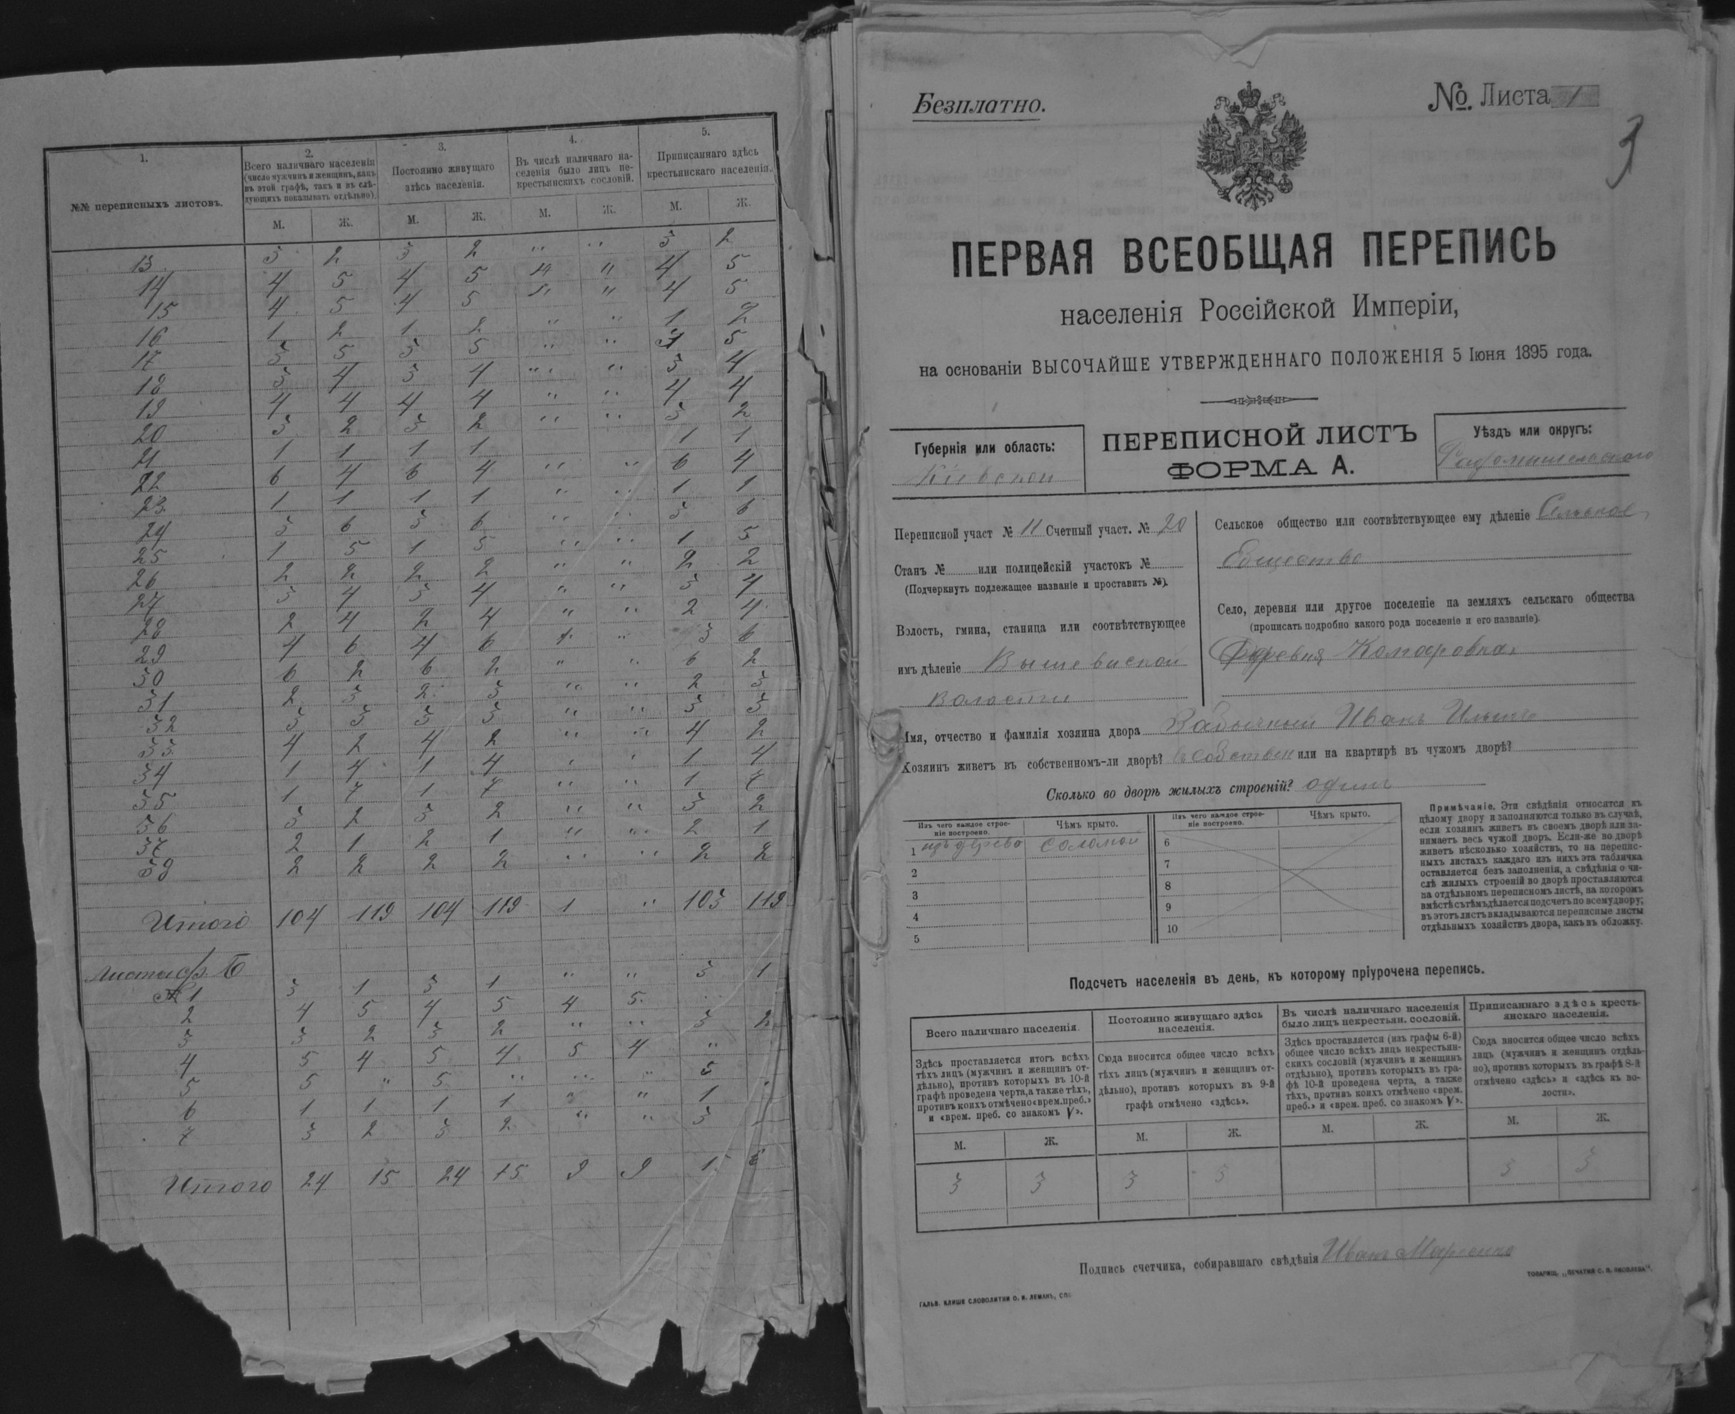 1.
№№ переписныхъ листовъ.
2.
Всего наличнаго населенія
(число мужчинъ и женщинъ, какъ
въ этой графѣ, такъ и въ слѣ-
дующихъ показывать отдѣльно).
3.
Постоянно живущаго
здѣсь населенія.
4.
Въ числѣ наличнаго на-
селенія было лицъ не-
крестьянскихъ сословій.
5.
Приписаннаго здѣсь
крестьянскаго населенія.
М. Ж. М. Ж. М. Ж. М. Ж.
13 3 2 3 2 „ „ 3 2
14 4 5 4 5 „ „ 4 5
15 4 5 4 5 „ „ 4 5
16 1 2 1 2 „ „ 1 2
17 3 5 3 5 „ „ 3 5
18 3 4 3 4 „ „ 3 4
19 4 4 4 4 „ „ 4 4
20 3 2 3 2 „ „ 3 2
21 1 1 1 1 1 1
22 6 4 6 4 „ „ 6 4
23 1 1 1 1 „ „ 1 1
24 3 6 3 6 „ „ 3 6
25 1 5 1 5 „ „ 1 5
26 2 2 2 2 „ „ 2 2
27 3 4 3 4 „ „ 3 4
28 2 4 2 4 „ „ 2 4
29 4 6 4 6 1 „ 3 6
30 6 2 6 2 „ „ 6 2
31 2 3 2 3 „ „ 2 3
32 3 3 3 3 „ „ 3 3
33 4 2 4 2 „ „ 4 2
34 1 4 1 4 „ „ 1 4
35 1 7 1 7 „ „ 1 7
36 3 2 3 2 „ „ 3 2
37 2 1 2 1 „ „ 2 1
38 2 2 2 2 „ „ 2 2
Итого 104 119 104 119 1 „ 103 119
Листа ф. Б
№ 1 3 1 3 1 „ „ 3 1
2 4 5 4 5 4 5
3 3 2 3 2 „ „ 3 2
4 5 4 5 4 5 4 „
5 5 „ 5 „ „ „ 5
6 1 1 1 1 „ 1
7 3 2 3 2 „ „ 3
Итого 24 15 24 15 9 9
Безплатно.
№. Листа 1
3
ПЕРВАЯ ВСЕОБЩАЯ ПЕРЕПИСЬ
населенія Россійской Имперіи,
на основаніи ВЫСОЧАЙШЕ УТВЕРЖДЕННАГО ПОЛОЖЕНІЯ 5 Іюня 1895 года.
Губернія или область:
Кіевской
ПЕРЕПИСНОЙ ЛИСТЪ
ФОРМА А.
Уѣздъ или округъ:
Радомысльскаго
Переписной участ № 11 Счетный участ. № 20
Станъ № или полицейскій участокъ №
(Подчеркнуть подлежащее названіе и проставить №).
Волость, гмина, станица или соотвѣтствующее
имъ дѣленіе Вышевиской
Волости
Сельское общество или соотвѣтствующее ему дѣленіе Сельское
Общество
Село, деревня или другое поселеніе на земляхъ сельскаго общества
(прописать подробно какого рода поселеніе и его названіе).
Деревня Комаровка
Имя, отчество и фамилія хозяина двора Иванъ
Хозяинъ живетъ въ собственномъ-ли дворѣ? в собствен или на квартирѣ въ чужомъ дворѣ?
Сколько во дворѣ жилыхъ строеній? одинъ
Изъ чего каждое строе-
ніе построено.
Чѣмъ крыто.
Изъ чего каждое строе-
ніе построено.
Чѣмъ крыто.
1 изъ дерева соломой
2
3
4
5
6
7
8
9
10
Примѣчаніе. Эти свѣдѣнія относятся къ
цѣлому двору и заполняются только въ случаѣ,
если хозяинъ живетъ въ своемъ дворѣ или за-
нимаетъ весь чужой дворъ. Если-же во дворѣ
живетъ нѣсколько хозяйствъ, то на перепис-
ныхъ листахъ каждаго изъ нихъ эта табличка
оставляется безъ заполненія, а свѣдѣнія о чи-
слѣ жилыхъ строеній во дворѣ проставляются
на отдѣльномъ переписномъ листѣ, на которомъ
вмѣстѣ съ тѣмъ дѣлается подсчетъ по всему двору;
въ этотъ листъ вкладываются переписные листы
отдѣльныхъ хозяйствъ двора, какъ въ обложку.
Подсчетъ населенія въ день, къ которому пріурочена перепись.
Всего наличнаго населенія.
Здѣсь проставляется итогъ всѣхъ
тѣхъ лицъ (мужчинъ и женщинъ от-
дѣльно), противъ которыхъ въ 10-й
графѣ проведена черта, а также тѣхъ,
противъ коихъ отмѣчено «врем. преб.»
и «врем. преб. со знакомъ V».
Постоянно живущаго здѣсь
населенія.
Сюда вносится общее число всѣхъ
тѣхъ лицъ (мужчинъ и женщинъ от-
дѣльно), противъ которыхъ въ 9-й
графѣ отмѣчено «здѣсь».
Въ числѣ наличнаго населенія
было лицъ некрестьян. сословій.
Здѣсь проставляется (изъ графы 6-й)
общее число всѣхъ лицъ некрестьян-
скихъ сословій (мужчинъ и женщинъ
отдѣльно), противъ которыхъ въ гра-
фѣ 10-й проведена черта, а также
тѣхъ, противъ коихъ отмѣчено «врем.
преб.» и «врем. преб. со знакомъ V».
Приписаннаго здѣсь кресть-
янскаго населенія.
Сюда вносится общее число всѣхъ
лицъ (мужчинъ и женщинъ отдѣль-
но), противъ которыхъ въ графѣ 8-й
отмѣчено «здѣсь» и «здѣсь въ во-
лости».
М. Ж. М. Ж. М. Ж. М. Ж.
3 3 3 3 3 3
Подпись счетчика, собиравшаго свѣдѣнія Иванъ
ГАЛЬВ. КЛИШЕ СЛОВОЛИТНИ О. И. ЛЕМАНЪ, СПБ.
ТОВАРИЩ. „ПЕЧАТНЯ С. П. ЯКОВЛЕВА“.